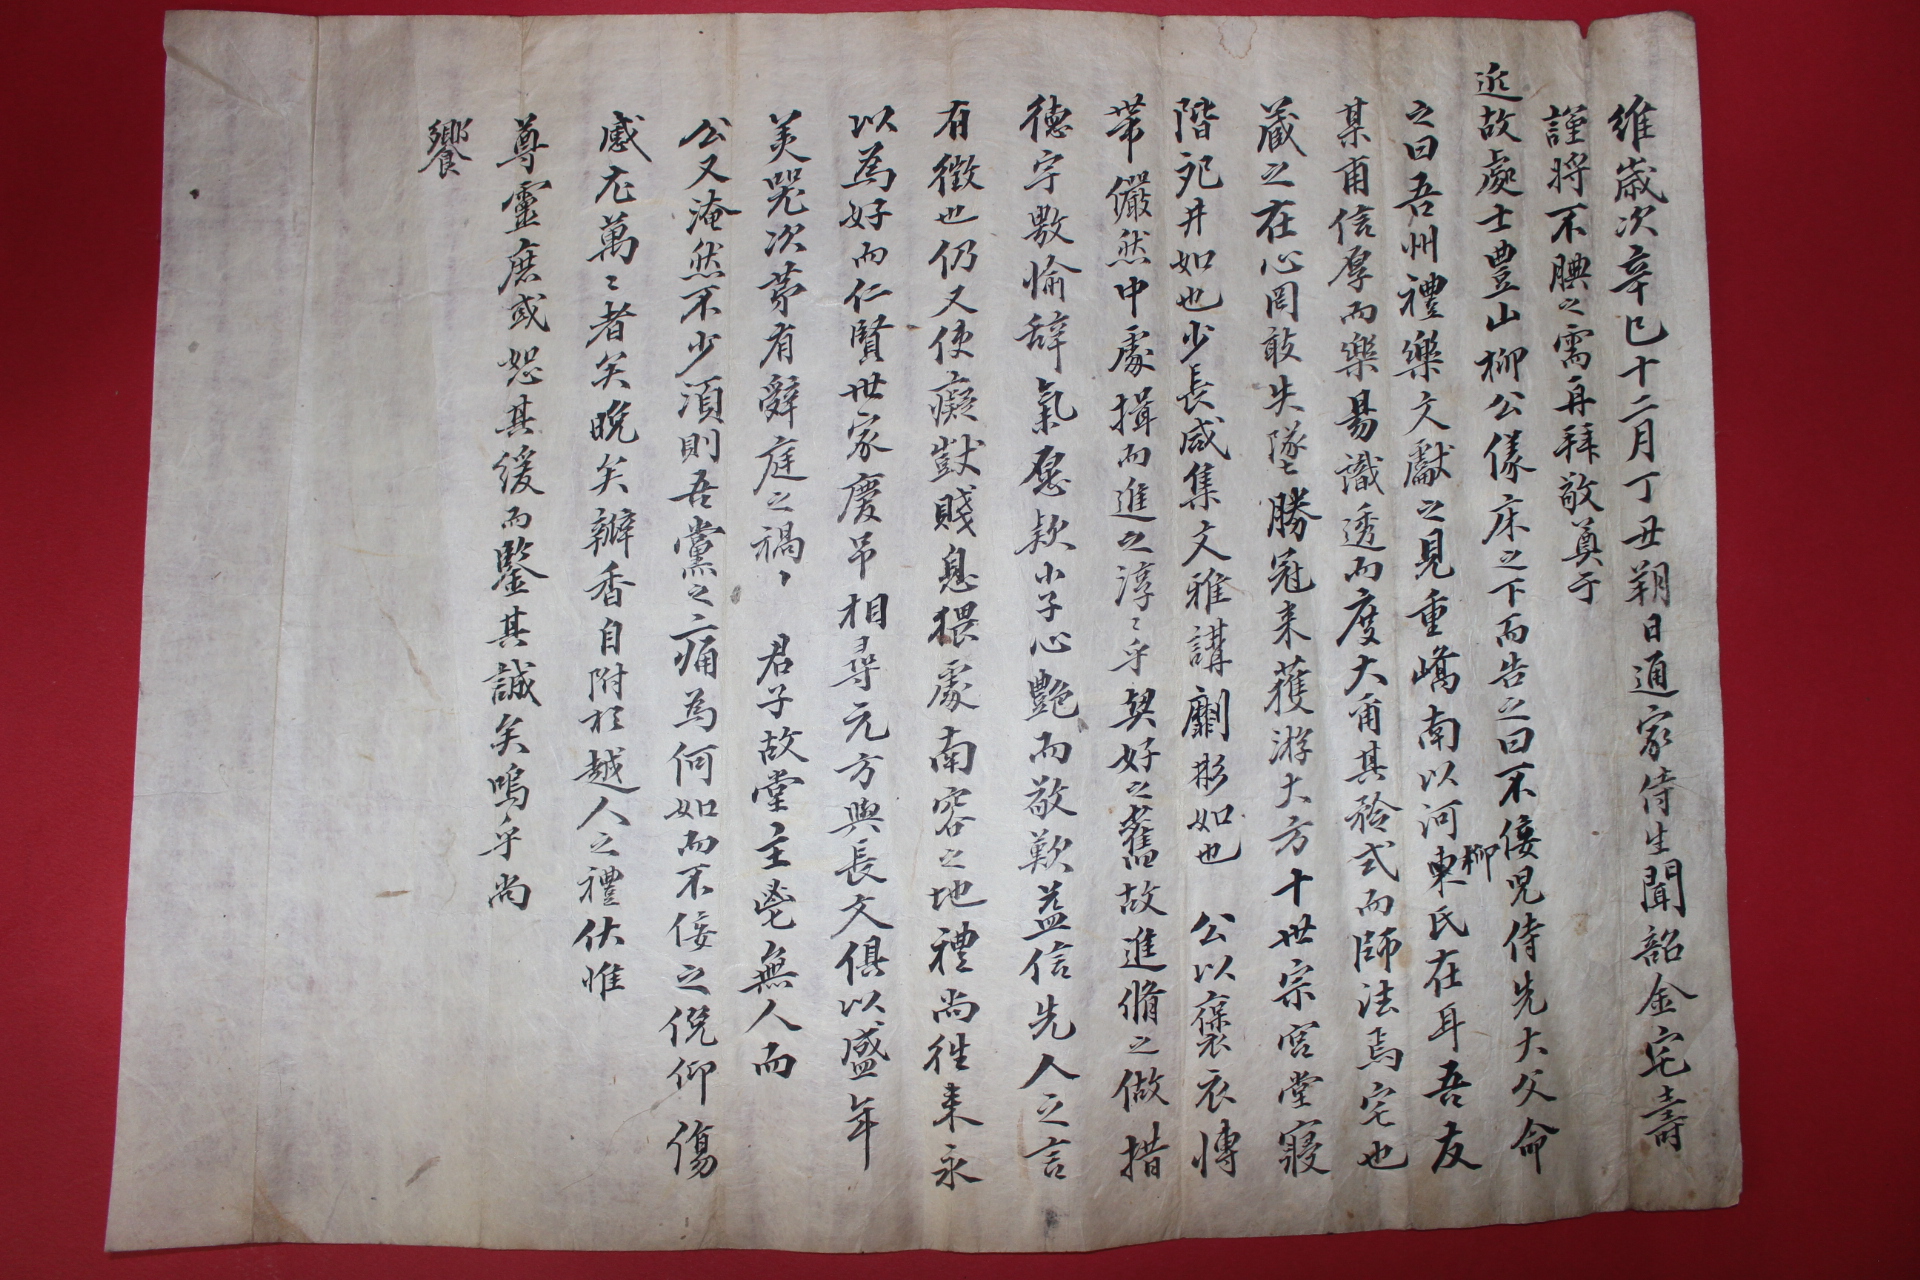 維歲次辛巳十二月丁丑朔日通家侍生聞韶金宅壽
謹將不腆之需再拜敬奠于
近故處士豊山柳公㒨床之下而告之曰不佞児侍先大父命
之曰吾州禮樂文獻之見重嶠南以河東柳氏在耳吾友
某甫信厚而樂易識透而度大甭其矜式而師法焉宅也
蔵之在心罔敢失墜勝冠来獲游大方十世宗宮堂寢
階戺井如也少長咸集文雅講劘彬如也 公以褒衣博
帶儼然中處揖而進之淳〻乎契好之舊故進脩之做措
德宇敷愉辞氣愿款小子心艶而敬歎盖信先人之言
有徵也仍又使癡獃賤息猥處南容之地禮尚徃来永
以為好而仁賢世家慶吊相尋元方與長文俱以盛年
美哭次苐有辭庭之禍 君子故堂主鬯無人而
公又淹然不少湏則吾黨之痛為何如而不佞之俛仰傷
感尤萬〻者矣晩矣瓣香自附於越人之禮伏惟
尊靈庶或恕其緩而鑒其誠矣嗚乎尚
饗